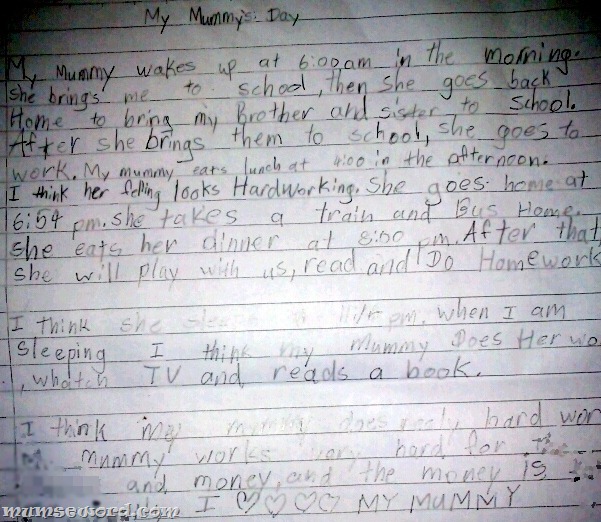 My Mummy's Day
My Mummy wakes up at 6:00am in the morning.
She brings me to school, then she goes back
Home to bring my Brother and sister to School.
After she brings them to school, she goes to
work. My mummy eats lunch at 4:00 in the afternoon.
I think her felling looks Hardworking. She goes home at
6:54 pm. she takes a train and Bus Home.
She eats her dinner at 8:50 pm. After that
she will play with us, read and Do Homework
I think she pm. when I am
Sleeping I think my Mummy Does Her wo
, whatch TV and reads a book.
I think my mummy does realy hard wor
Mummy works very hard for
and money, and the money is
I ♡♡♡♡ MY MUMMY
mumseword.com